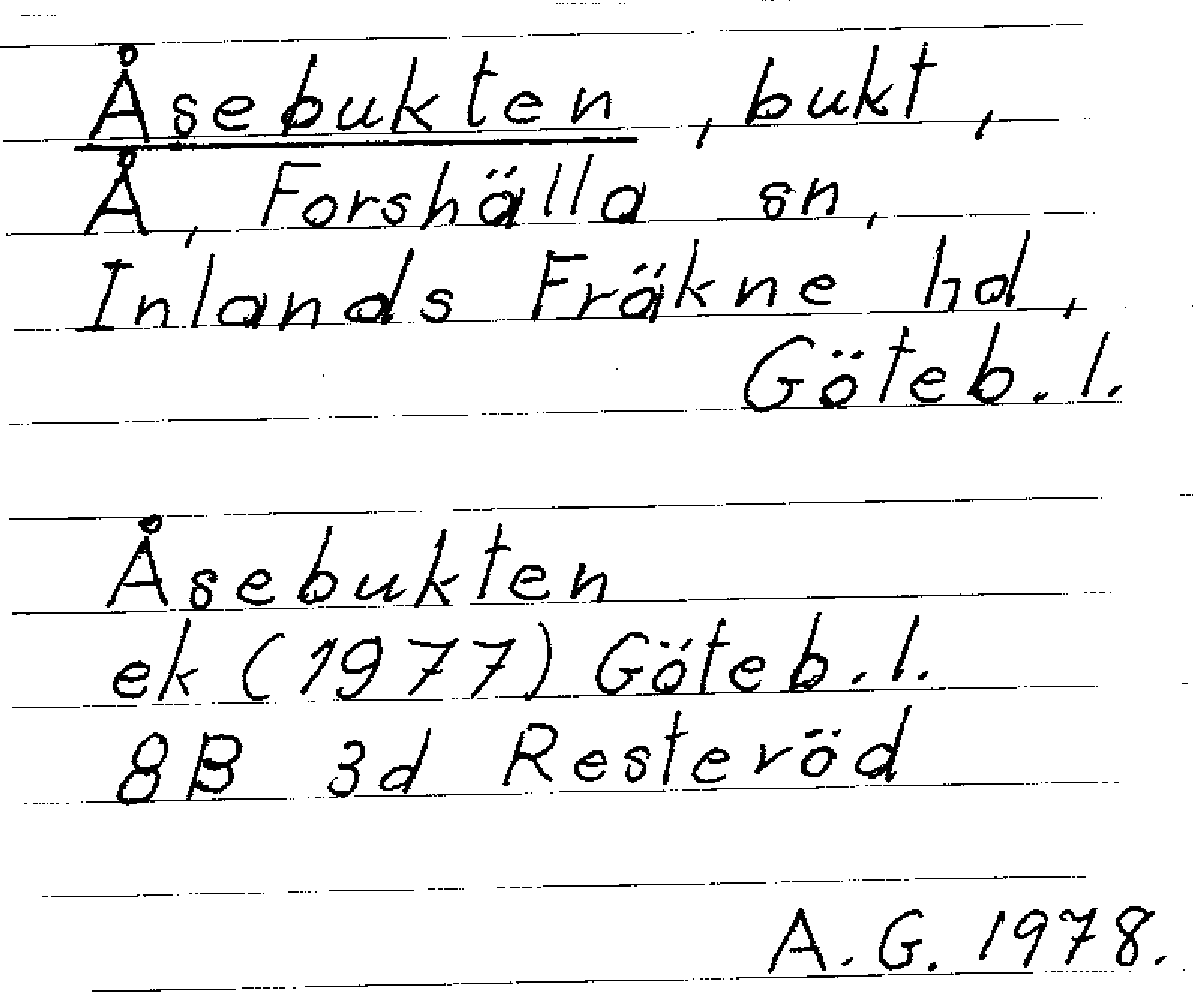 Åsebukten, bukt,
Å, Forshälla sn,
Inlands Fräkne hd,
Göteb. l.
Åsebukten
ek (1977) Göteb. l.
8B 3d Resteröd
A. G. 1978.